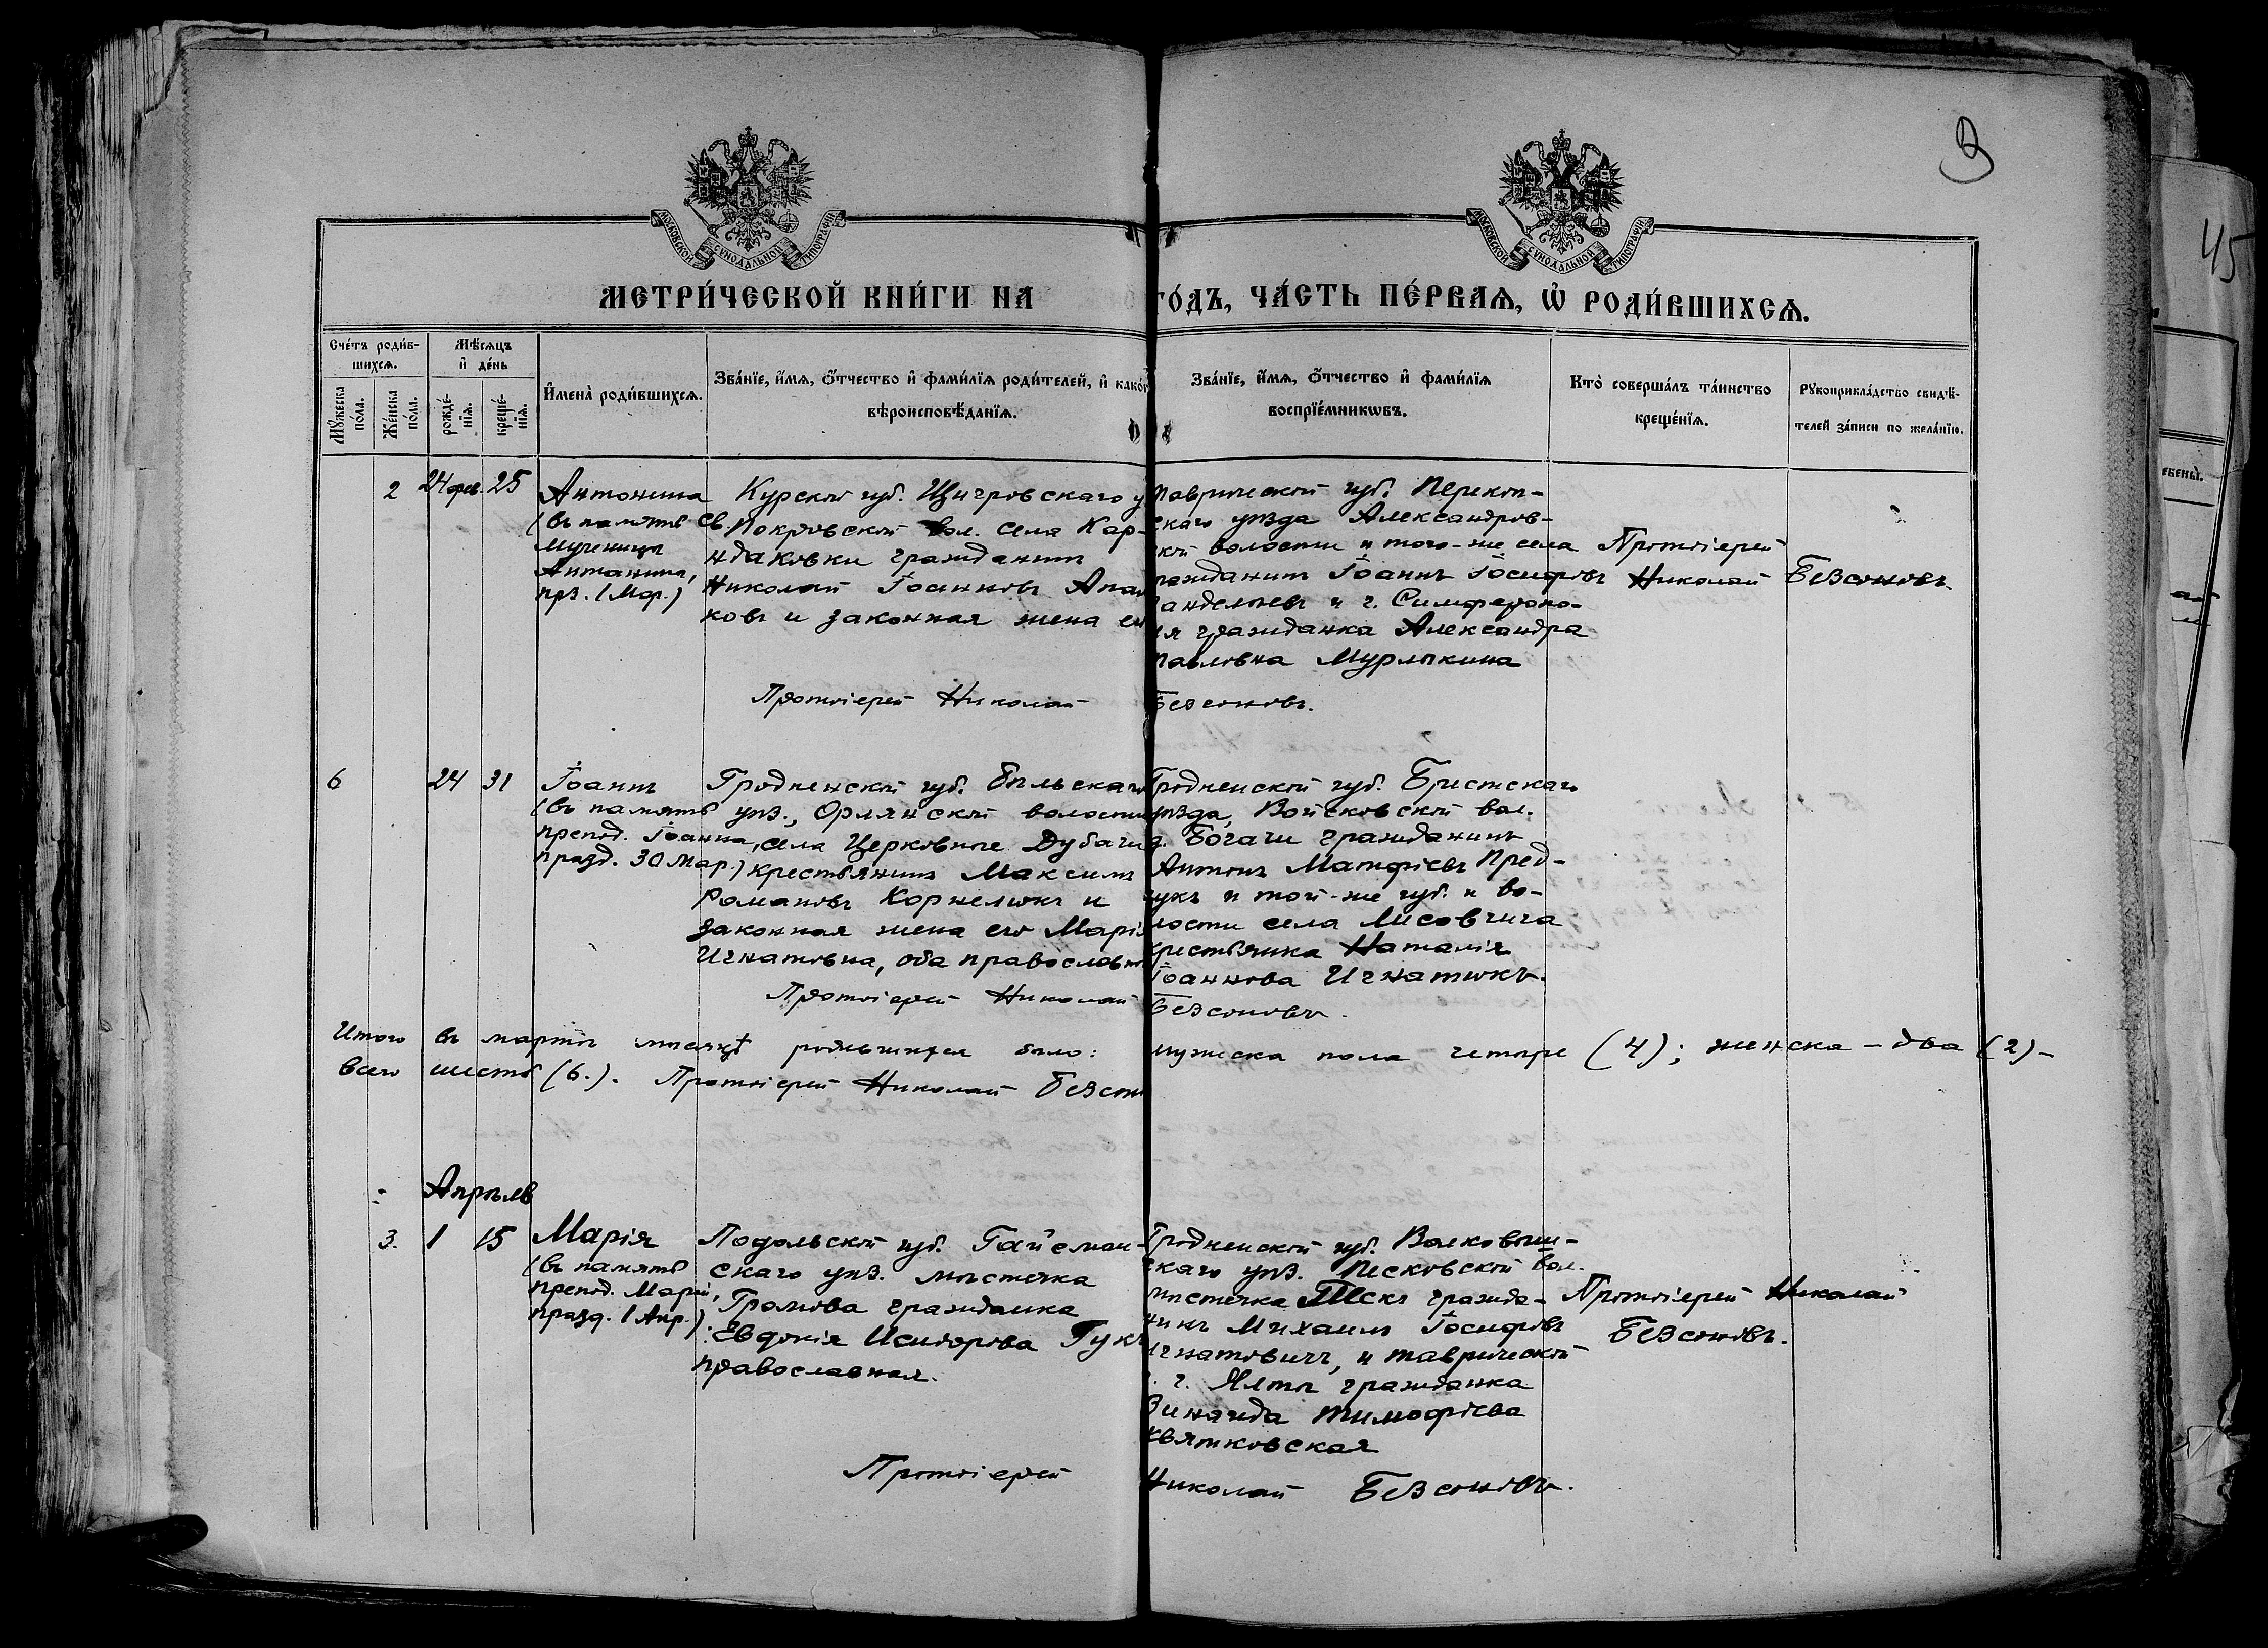 З
45
МОСКОВСКОЙ СѴНОДАЛЬНОЙ ТИПОГРАФІИ
МОСКОВСКОЙ СѴНОДАЛЬНОЙ ТИПОГРАФІИ
МЕТРИ́ЧЕСКОЙ КНИ́ГИ НА ГО́ДЪ, ЧА́СТЬ ПЕ́РВАѦ, Ѿ РОДИ́ВШИХСѦ.
Сче́тъ роди́вшихсѧ.
Мꙋ́жеска по́ла.
Же́нска по́ла.
Мѣ́сѧцъ и҆ де́нь
рожде́нїѧ.
креще́нїѧ.
И҆мена̀ роди́вшихсѧ.
Зва́нїе, и҆́мѧ, ѻ҆́тчество и҆ фами́лїѧ роди́телей, и҆ како́г
вѣроисповѣ́данїѧ.
Зва́нїе, и҆́мѧ, ѻ҆́тчество и҆ фами́лїѧ
воспрїе́мникѡвъ.
Кто̀ соверша́лъ та́инство
креще́нїѧ.
Рꙋкоприкла́дство свидѣ́-
телей за́писи по жела́нїю.
2 24 фев. 25
Антонина
(въ память св.
Мученицы
Антонины,
прз. 1 Мар.)
Курской губ. Щигровскаго у
Покровской вол. села Кар-
ндаковки гражданинъ
Николай Іоанновъ Апал
ковъ и законная жена ег
Таврической губ. Перекоп-
скаго уѣзда Александров-
ской волости и того-же села
гражданинъ Іоаннъ Іосифовъ
и г. Симферопо-
ля гражданка Александра
Павловна Мурлыкина
Протоіерей
Николай Безсоновъ
Протоіерей Николай Безсоновъ.
6 24 31
Іоаннъ
(въ память
препод. Іоанна,
празд. 30 Мар.)
Гродненской губ. Бѣльскаго
уѣз., Орлянской волости
села Церковные Дубачи
крестьянинъ Максимъ
Романовъ Корнелюкъ и
законная жена его Марія
Игнатовна, оба православн
Гродненской губ. Брестскаго
уѣзда, Войсковской вол.
д. Богачи гражданинъ
Антонъ Матфіевъ Пред-
чукъ и той-же губ. и во-
лости села Лисовчича
крестьянка Наталія
Іоаннова Игнатюкъ.
Протоіерей Николай Безсоновъ.
Итого въ мартѣ мѣсяцѣ родившихся было: мужеска пола четыре (4); женска - два (2) -
всего шесть (6.). Протоіерей Николай Безсон
Апрѣль
3. 1 15
Марія
(въ память
препод. Маріи,
празд. 1 Апр.)
Подольской губ. Гайсман-
скаго уѣз. мѣстечка
Громова гражданка
Евдокія Исидорова Гукъ
православная.
Гродненской губ. Волковыш-
скаго уѣз. Песковской вол.
мѣстечка Пескъ гражда-
нинъ Михаилъ Іосифовъ
Игнатовичъ, и таврической
г. г. Ялты гражданка
Зинаида Тимофіева
Квятковская
Протоіерей Николай
Безсоновъ.
Протоіерей Николай Безсоновъ.